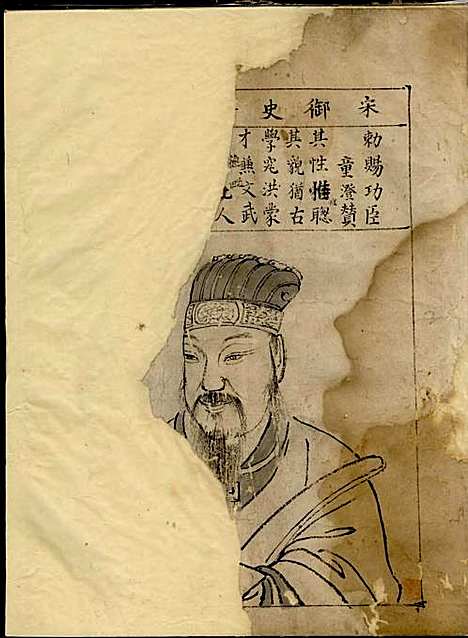 宋御史
勅賜功臣
童澄賛
其性惟聰
其貌猶古
學究洪蒙
才兼文武
人